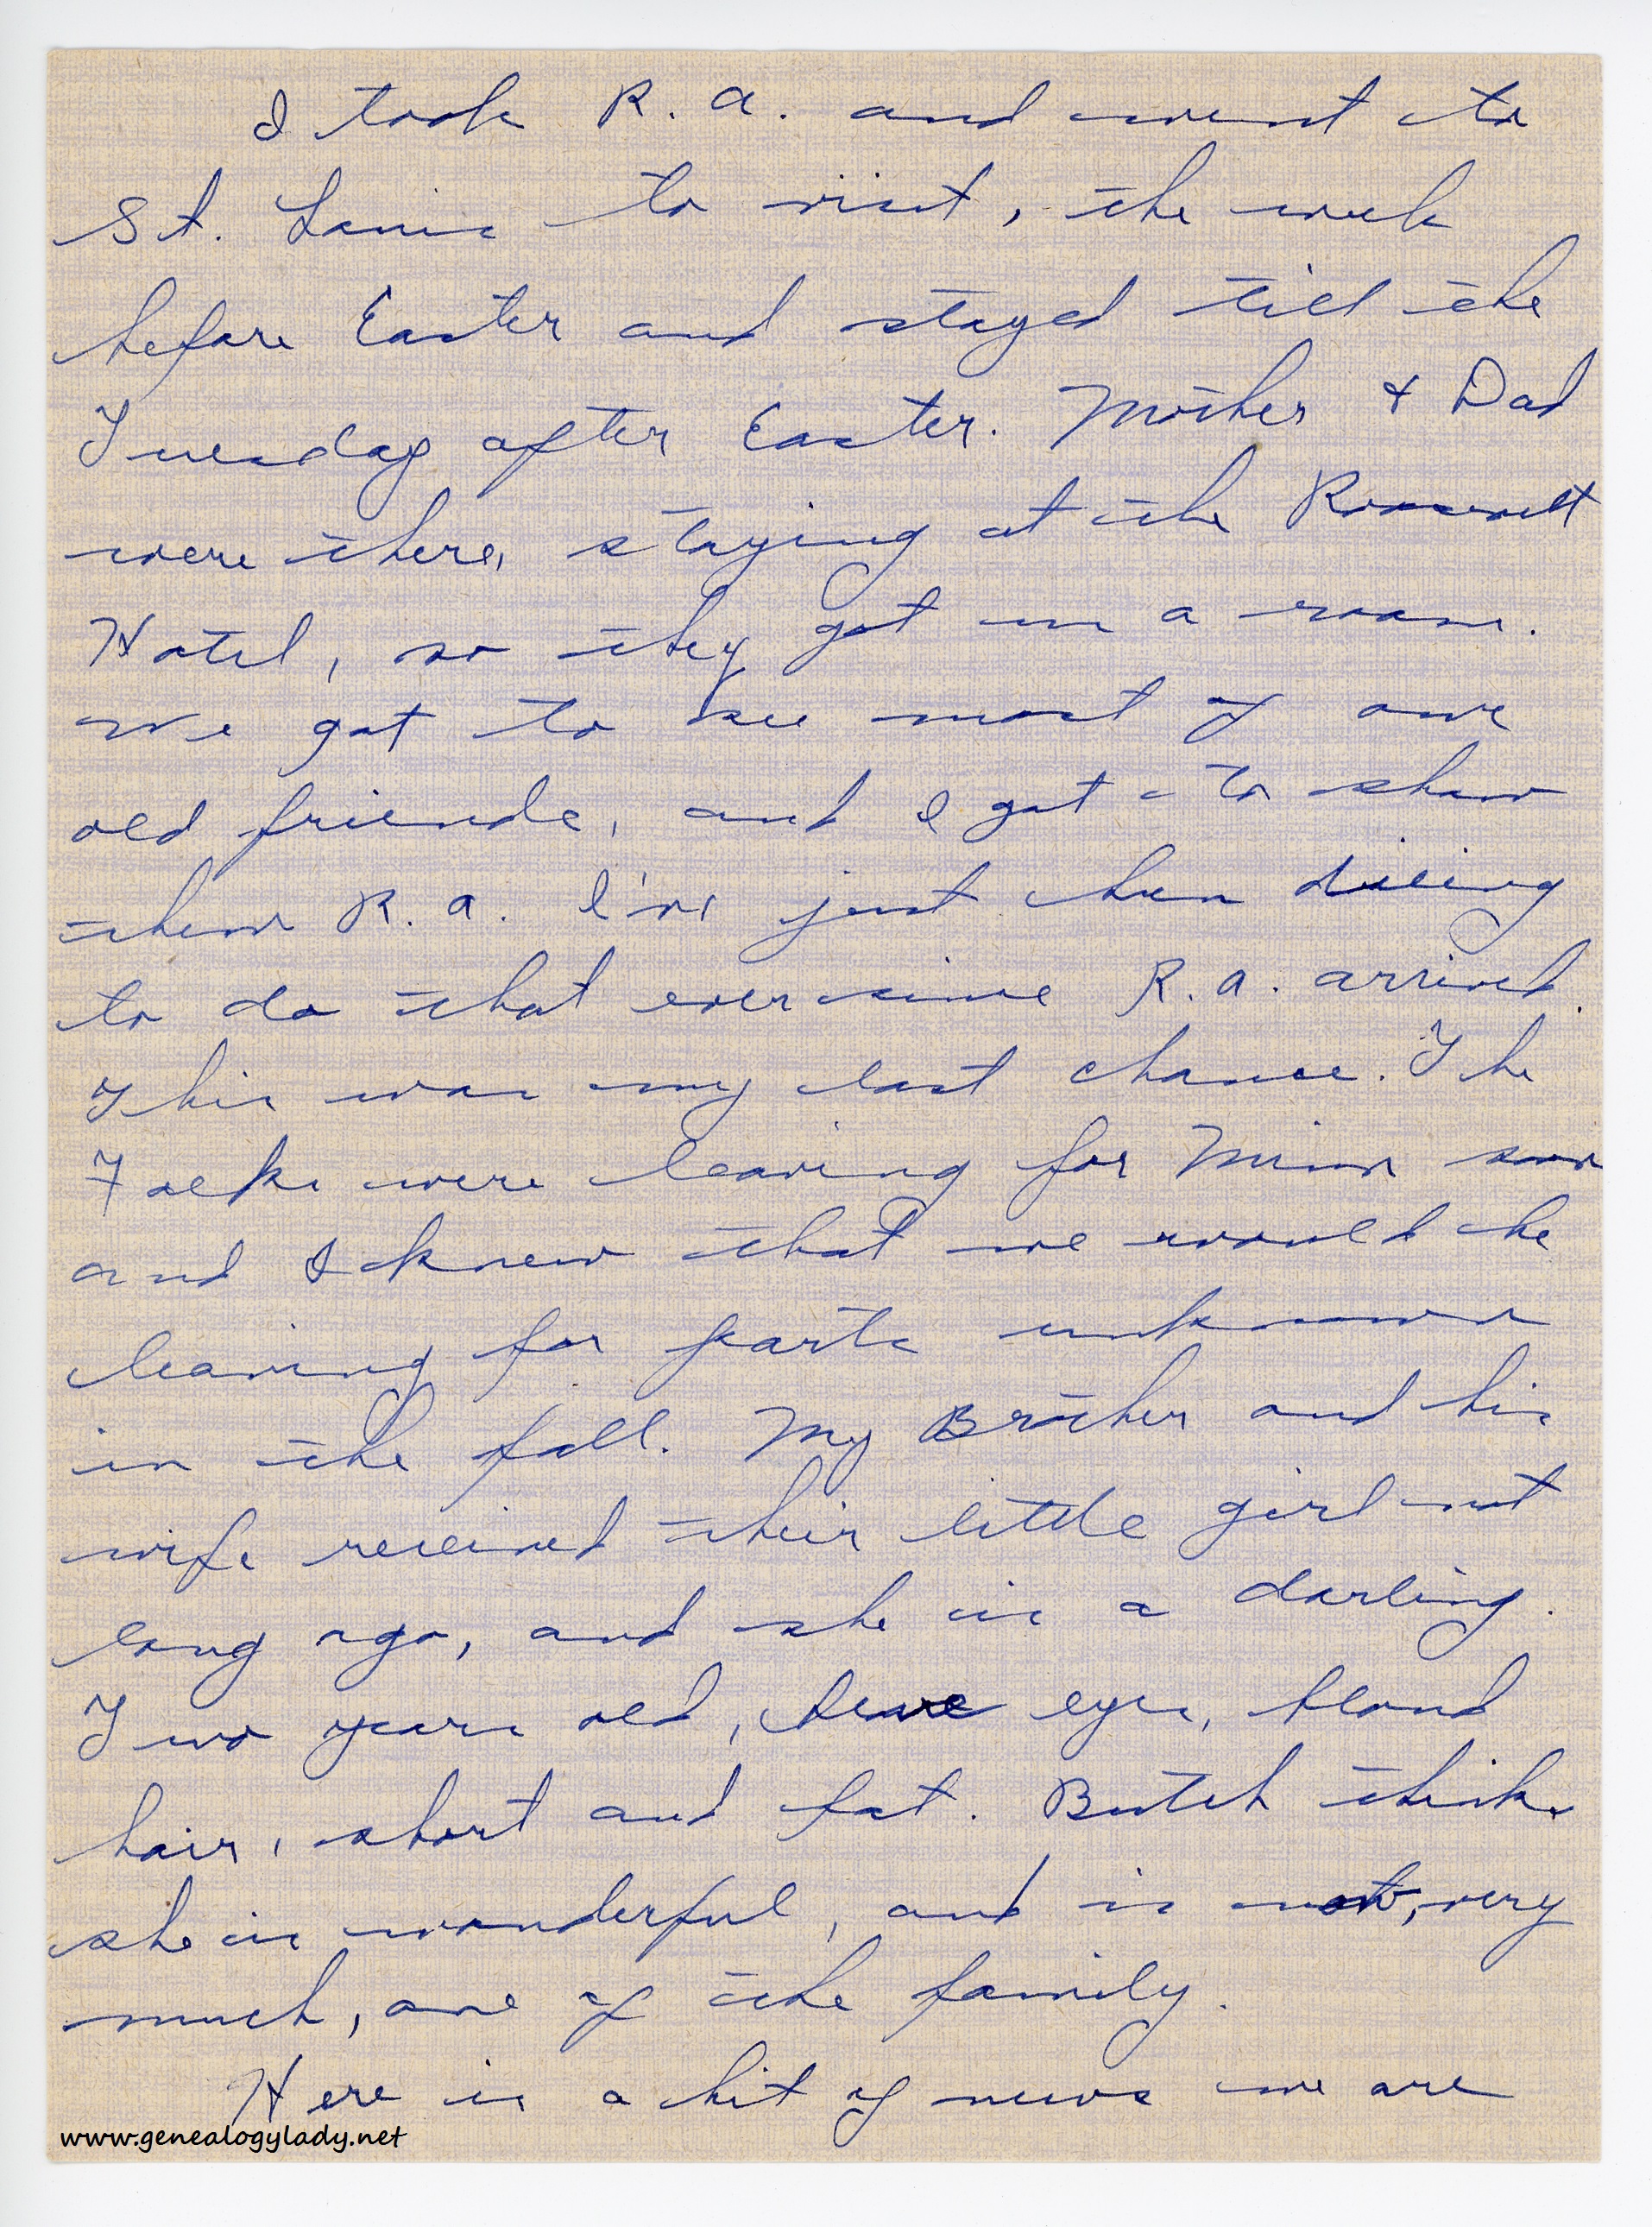 I took R. A. and went to
St. Louis to visit, the week
before Easter and stayed till the
Tuesday after Easter. Mother + Dad
were there, staying at the Roosevelt
Hotel, so they got us a room.
We got to see most of our
old friends, and I got to show
them R. A. I've just been dieing
to do that ever since R. A. arrived.
This was my last chance. The
Folks were leaving for Minn soon
and I knew that we would be
leaving for parts unknown
in the fall. My Brother and his
wife received their little girl not
long ago, and she is a darling.
Two years old, blue eyes, blond
hair, short and fat. Butch thinks
she is wonderful, and is now, very
much, one of the family.
Here is a bit of news we are
www.genealogylady.net